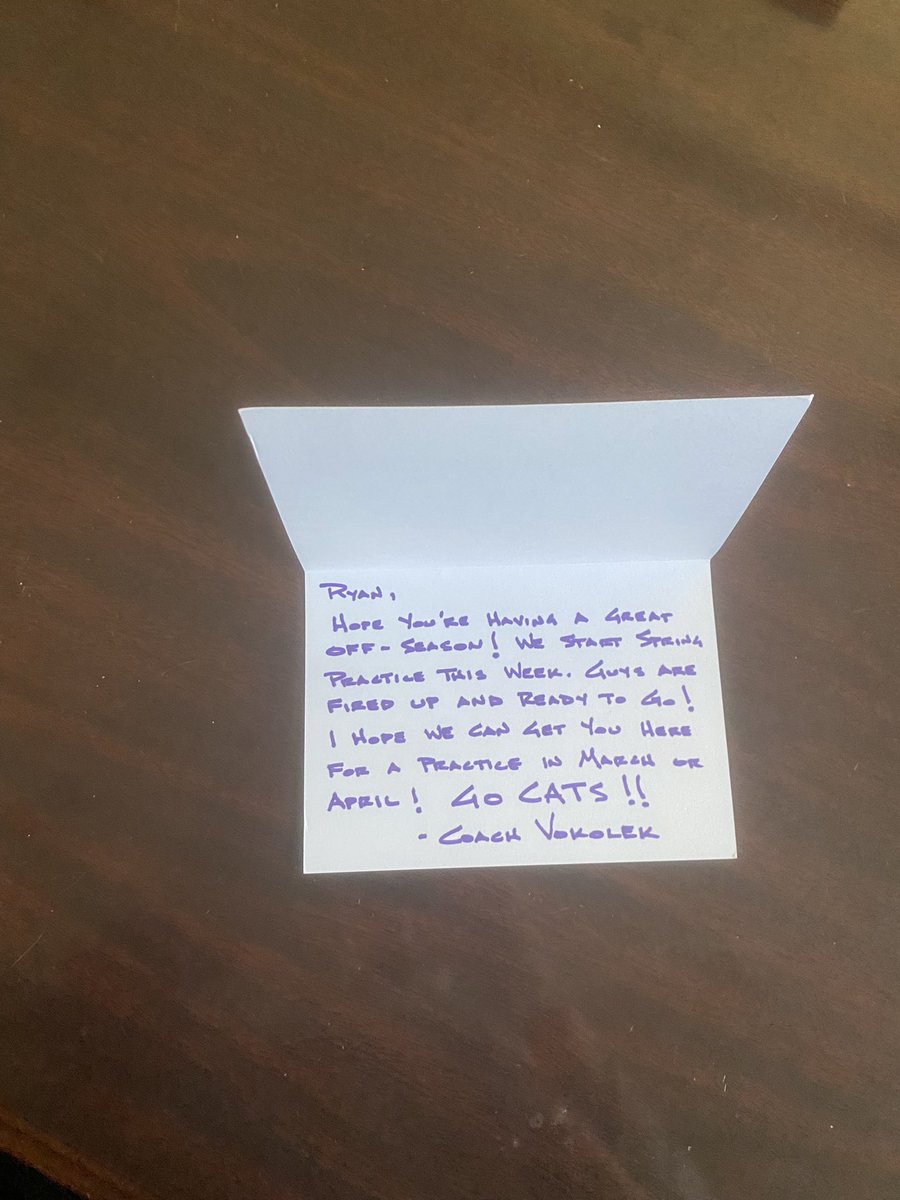 Ryan,
Hope you're having a great
off-season! We start spring
practice this week. Guys are
fired up and ready to go!
I hope we can get you here
for a practice in March or
April! Go CATS!!
- Coach Vokolek